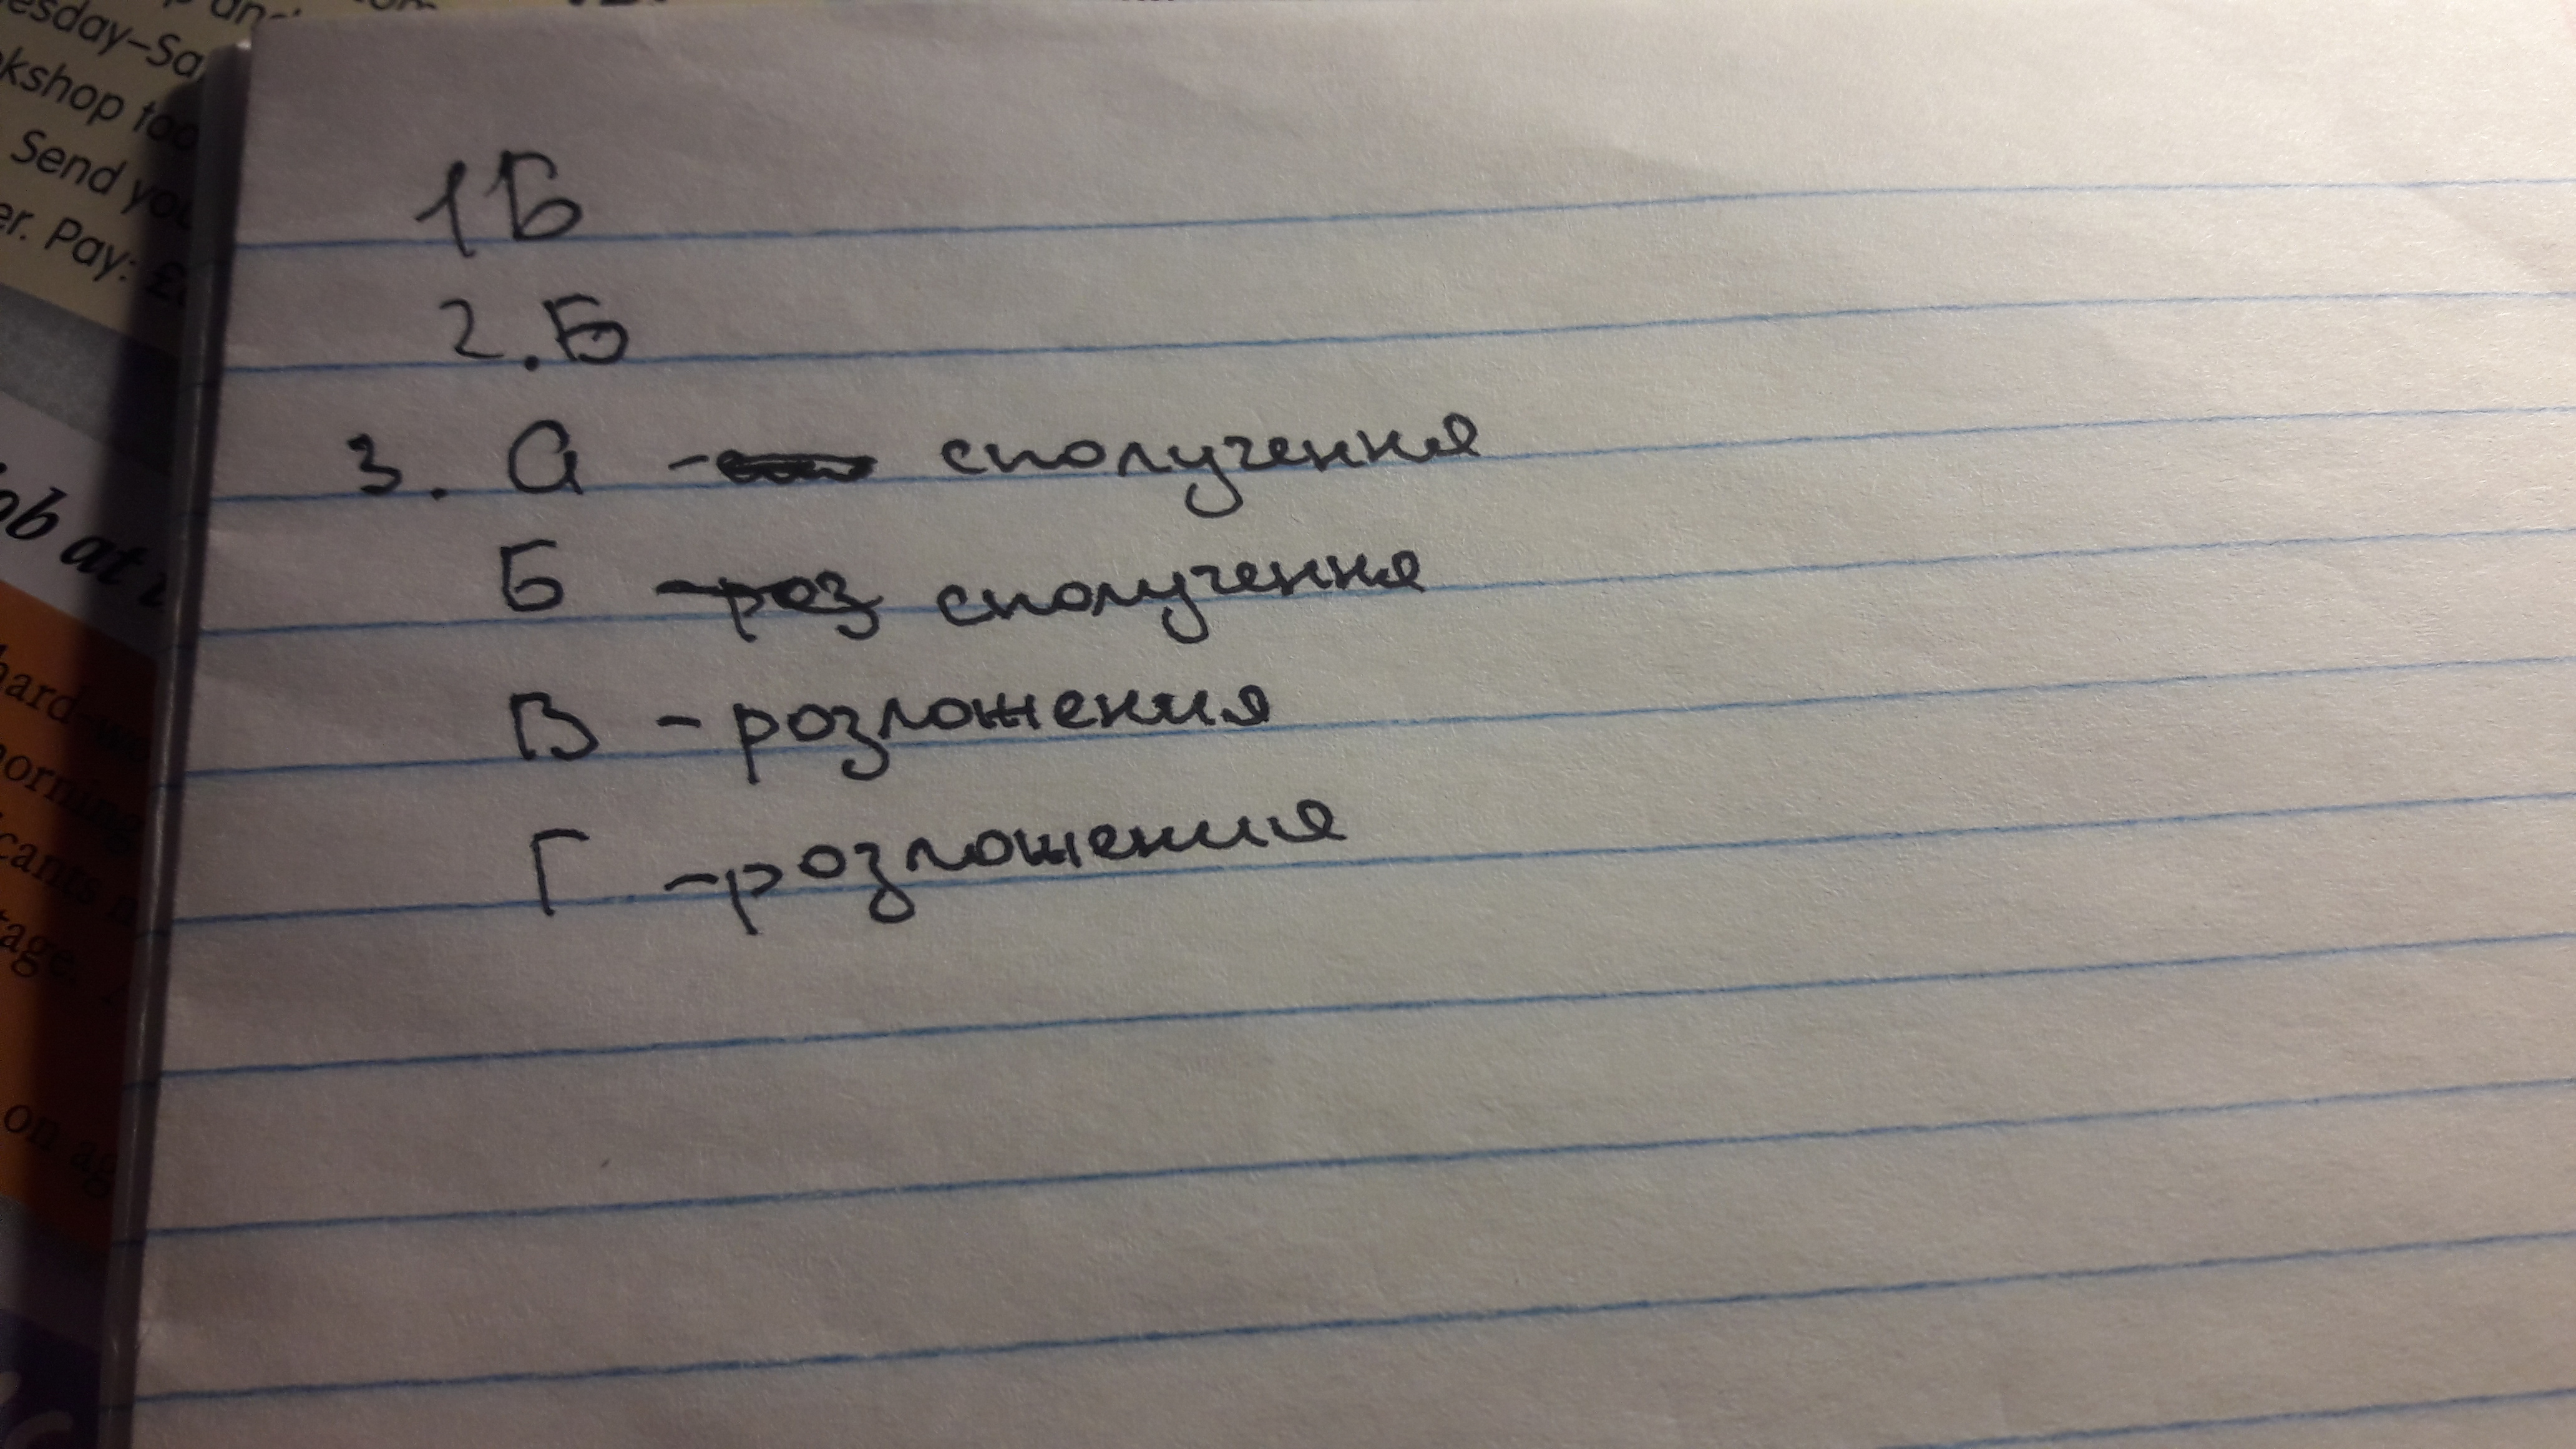 esday-Sa
kshop too
Send you
er. Pay: £
ob at
hard-we
orning
cants n
tage.
on ag
1Б
2. Б
3. а - сполучення
Б - роз сполучення
В - розложення
Г - розложення